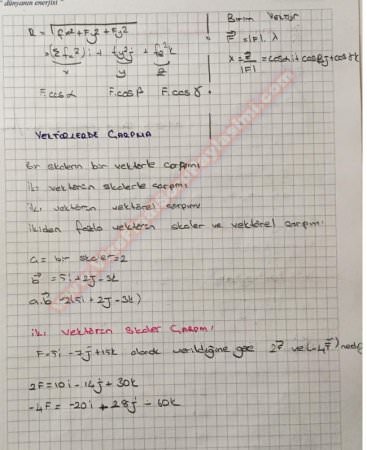 " dünyanın enerjisi "
R = √fx² + Fy² + Fy²
= (Σfx²)i + fy²j + fz²k
x y z
F.cosα F.cosβ F.cosγ
Birim Vektör
F = |F|. λ
λ = F/|F| = cosαi + cosβj + cosγk
VEKTÖRLERDE ÇARPMA
Bir skalerin bir vektörle çarpımı
İki vektörün skalerle çarpımı
İki vektörün vektörel çarpımı
İkiden fazla vektörün skaler ve vektörel çarpımı
a = bir skaler = 2
b = 5i + 2j - 3k
a.b = 2(5i + 2j - 3k)
İki Vektörün Skaler Çarpımı
F = 5i - 7j + 15k olarak verildiğine göre 2F ve (-4F) nedir
2F = 10i - 14j + 30k
-4F = -20i + 28j - 60k